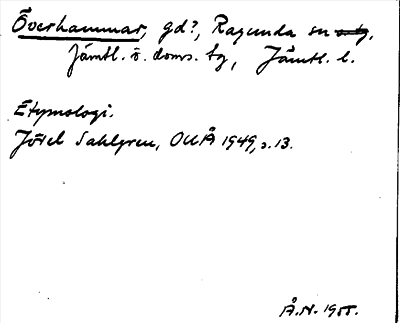 Överhammar, gd?, Ragunda sn
Jämtl. ö. doms. tg, Jämtl. l.
Etymologi.
Jöran Sahlgren, OUÅ 1949, s. 13.
Å.N. 1955.